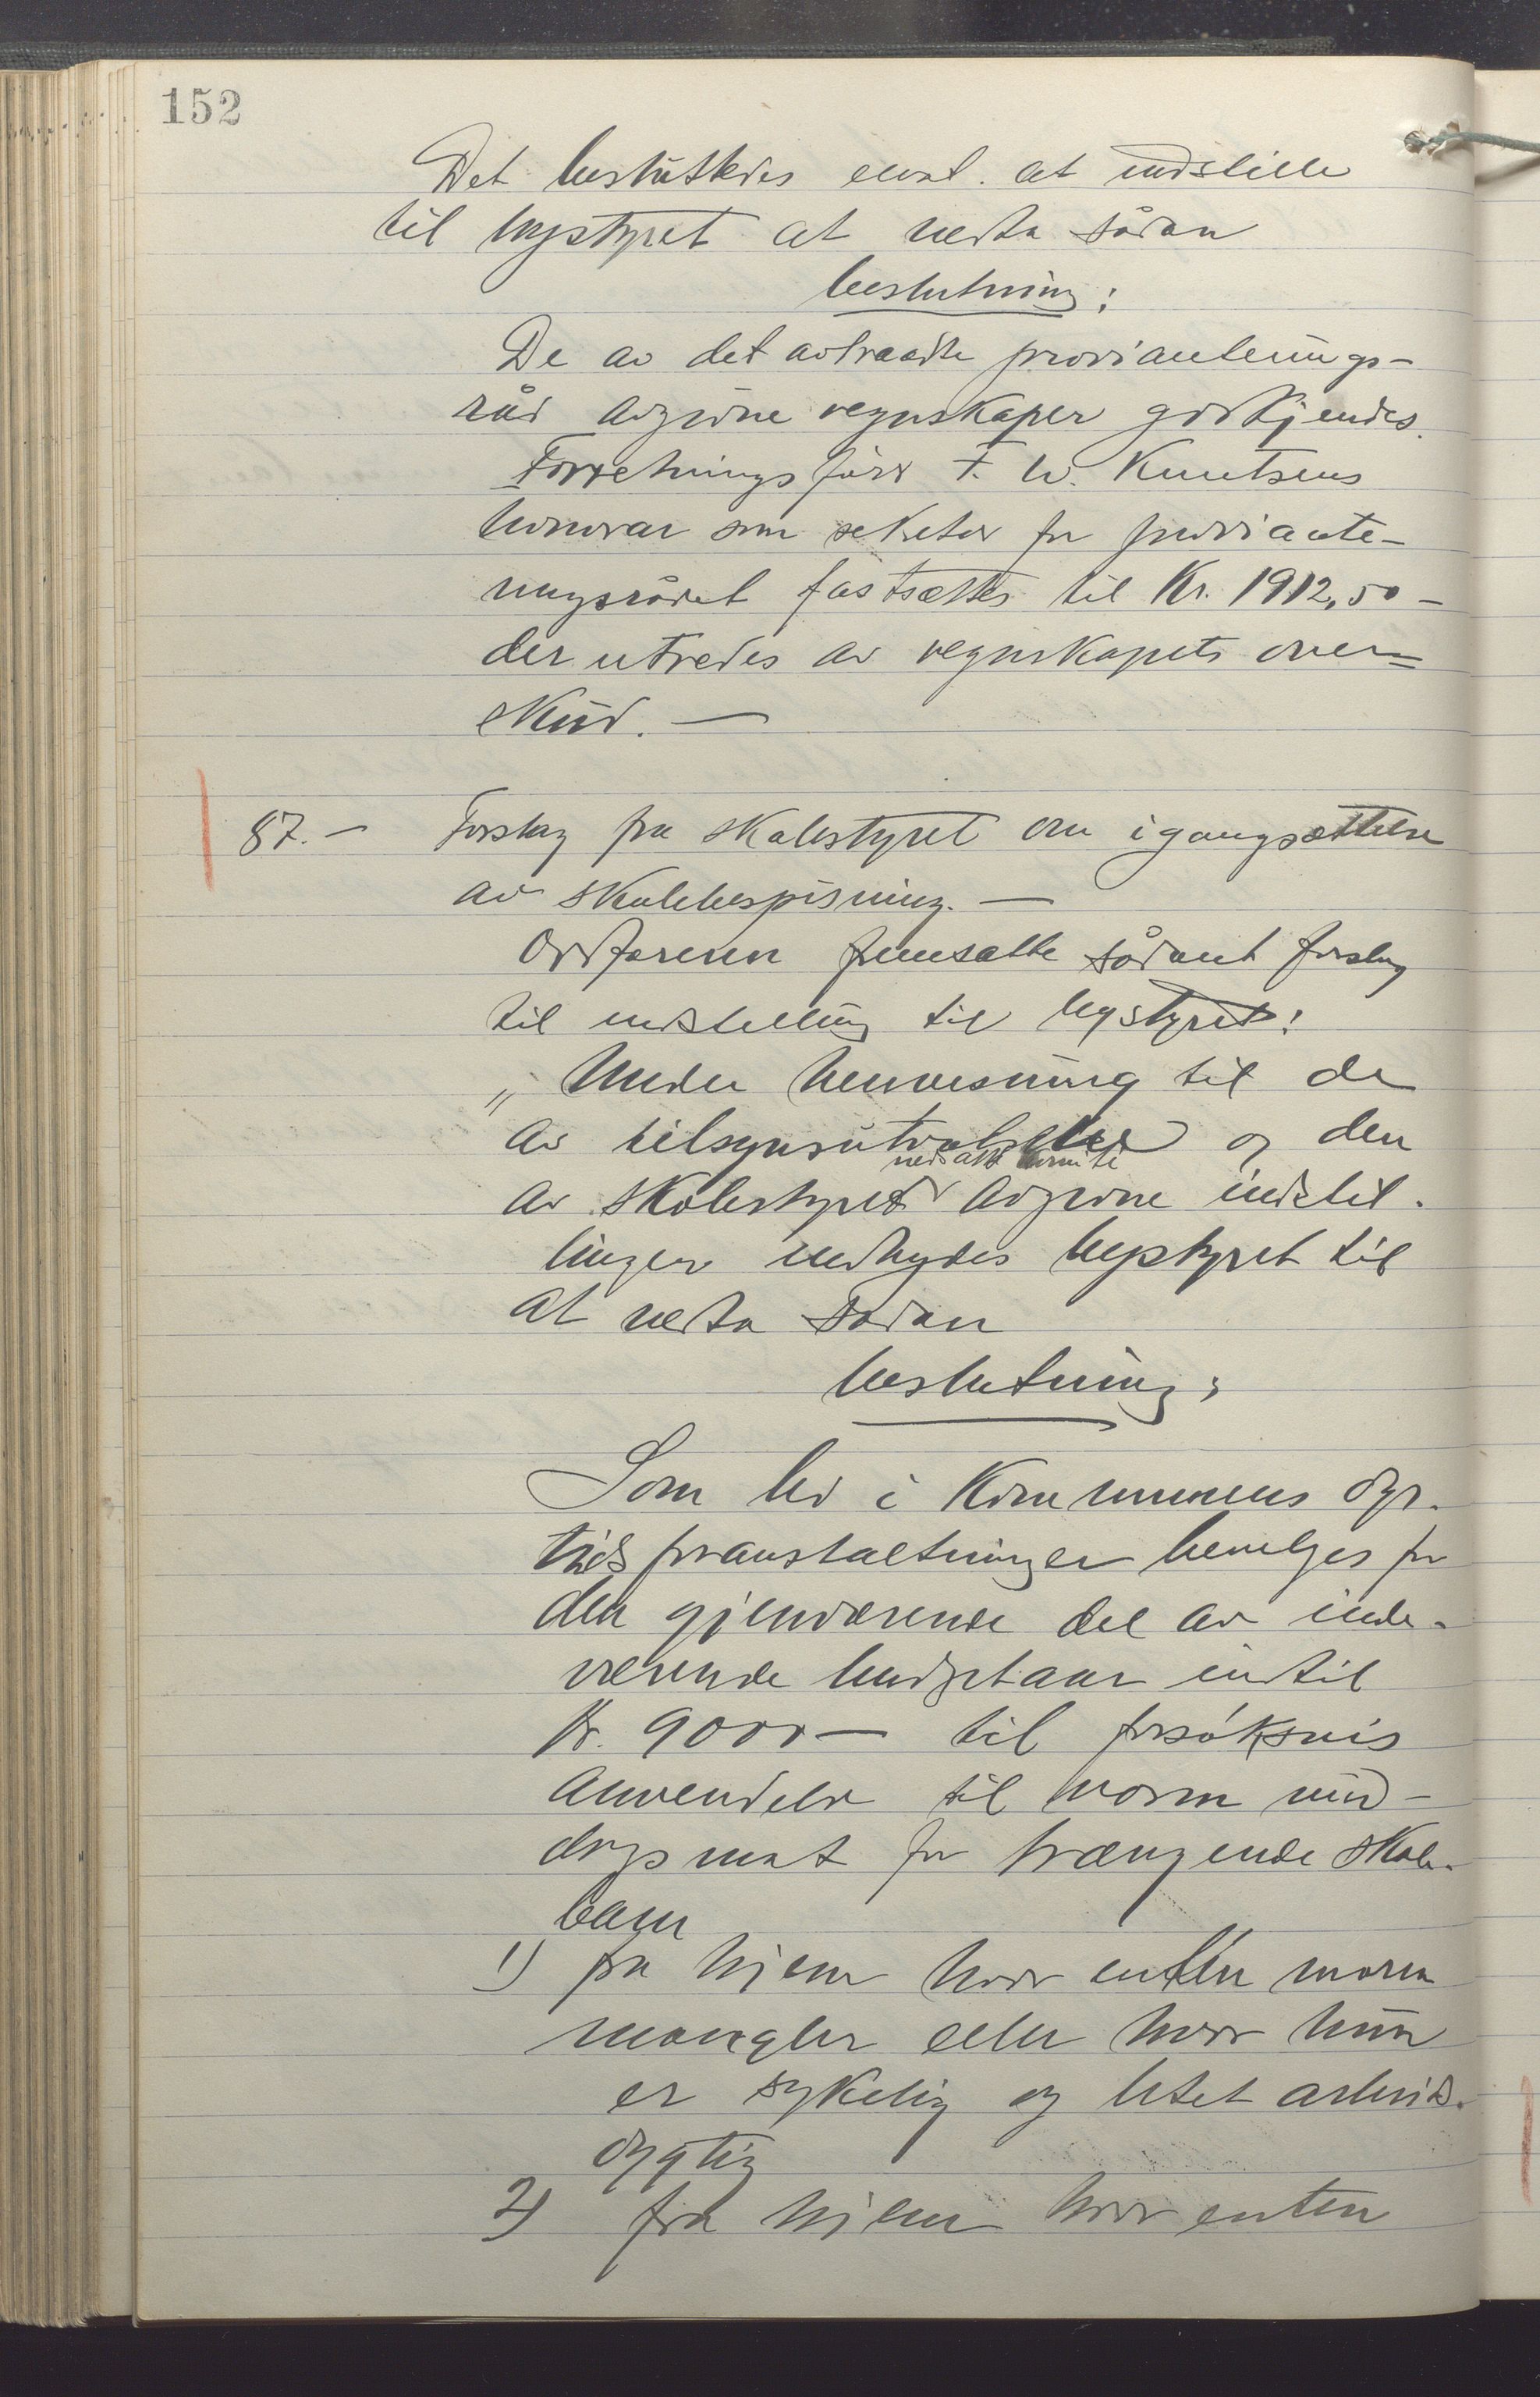 152
Det besluttedes enst. at indstille
til bystyret at vedta sådan
beslutning:
De av det avtraadte provianterings-
råd avgivne regnskaper godkjendes.
Forretningsförer F. W. Knutsens
honorar som sekretær for proviante-
ringsrådet fastsættes til Kr. 1912,50 -
der utredes av regnskapets over-
skud. —
87. - Forslag fra skolestyret om igangsættelse
av skolebespisning. —
Ordføreren fremsatte sådant forslag
til indstilling til bystyret:
„Under henvisning til de
av tilsynsutvalgene og den
nedsatt komite
av skolestyret avgivne indstil-
linger indbydes bystyret til
at vedta sådan
beslutning:
Som led i Kommunens dyr-
tids foranstaltninger bevilges for
den gjenværende del av inde-
værende budgetaar indtil
Kr. 9000 — til forsöksvis
anvendelse til varm mid-
dagsmat for trængende skole-
barn
1) fra hjem hvor enten moren
mangler eller hvor hun
er sykelig og litet arbeids-
dygtig
2) fra hjem hvor enten